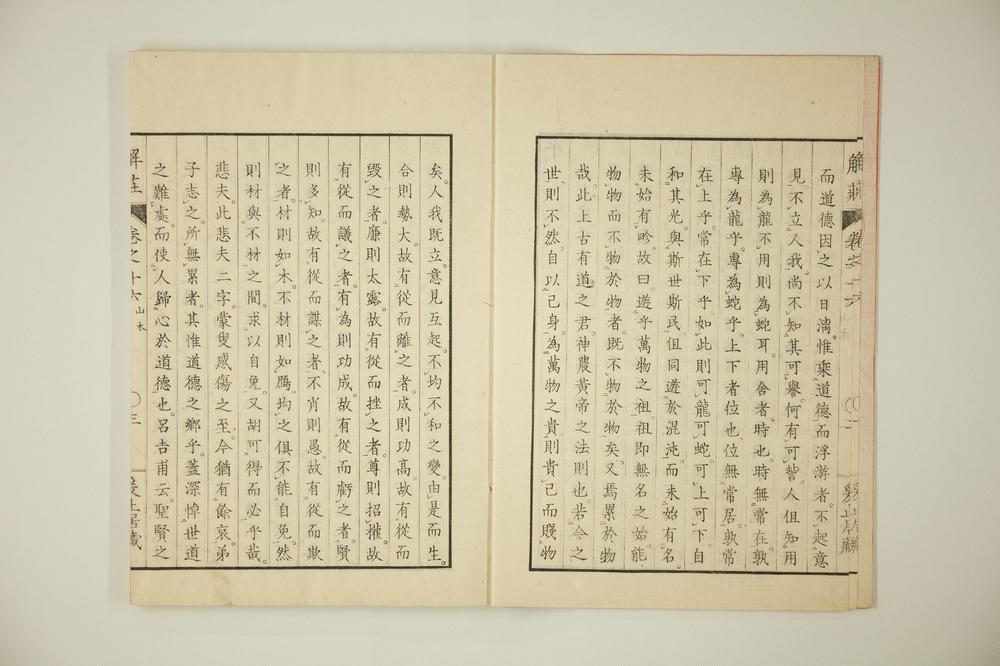 解莊 卷之十六 二
而道德因之以日漓惟乘道德而浮游者不起意
見不立人我尚不知其可譽何有可訾人但知用
則為龍不用則為蛇耳用舍者時也時無常在孰
專為龍乎專為蛇乎上下者位也位無常居孰常
在上乎常在下乎如此則可龍可蛇可上可下自
和其光與斯世斯民但同遊於混沌而未始有名
未始有畛故曰遊乎萬物之祖祖即無名之始能
物物而不物於物者既不物於物矣又焉累於物
哉此上古有道之君神農黃帝之法則也若今之
世則不然自以己身為萬物之貴則貴己而賤物
矣人我既立意見互起不均不和之變由是而生
合則勢大故有從而離之者成則功高故有從而
毀之者廉則太露故有從而挫之者尊則招權故
有從而議之者有為則功成故有從而虧之者賢
則多知故有從而謀之者不肖則愚故有從而欺
之者材則如木不材則如鴈均之俱不能自免然
則材與不材之間求以自免又胡可得而必乎哉
悲夫此悲夫二字蒙叟感傷之至今猶有餘哀弟
子志之所無累者其惟道德之鄉乎蓋深悼世道
之難處而使人歸心於道德也呂吉甫云聖賢之
解莊 卷之十六 山木 三